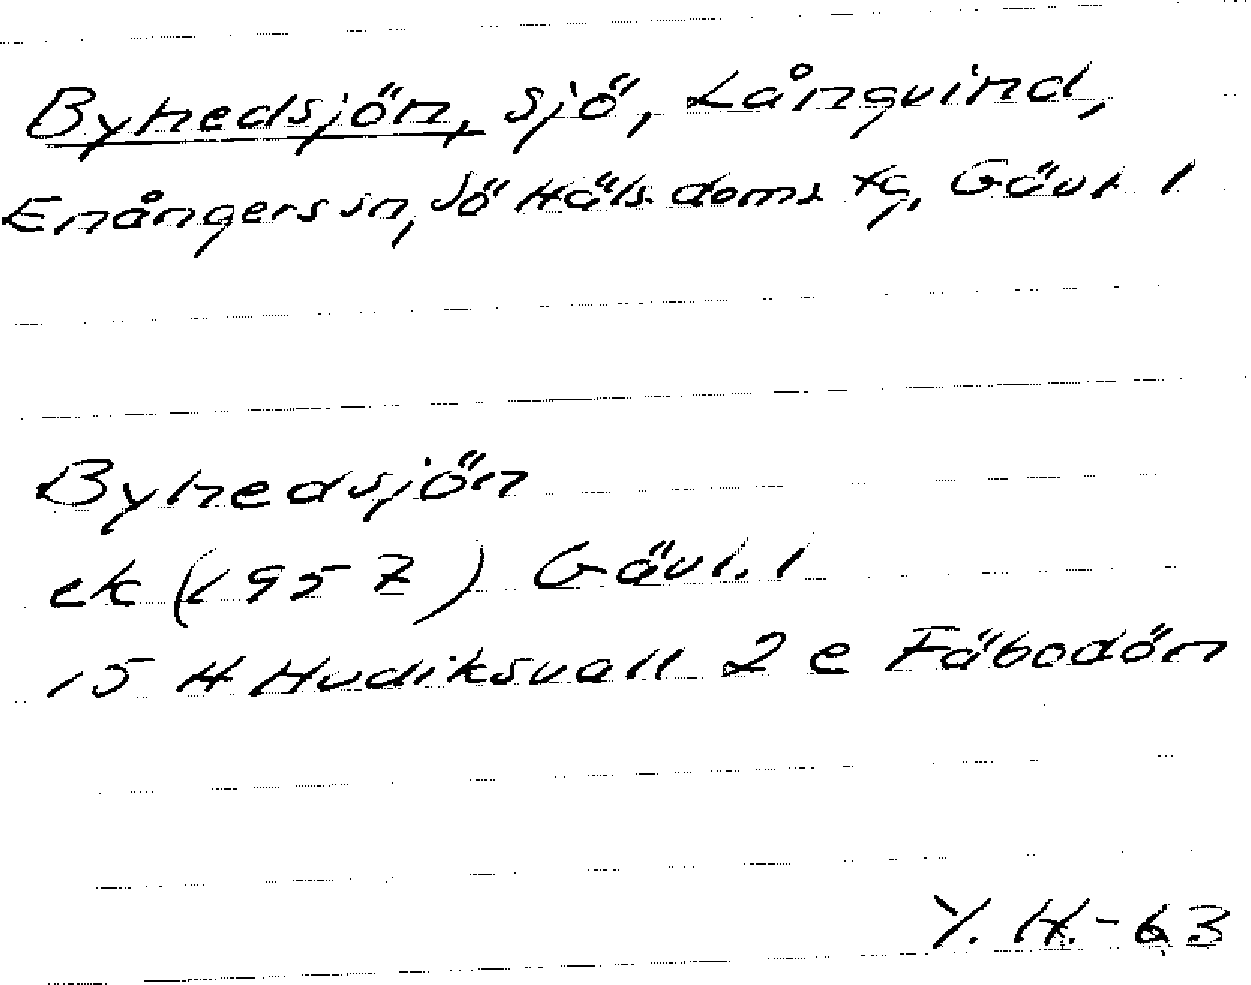 Byhedsjön, sjö, Långvind,
Enångers sn, Sö Häls. doms tg, Gävl. l
Byhedsjön
ek (1957) Gävl. l
15 H Hudiksvall 2 e Fäbodön
Y. H.-63